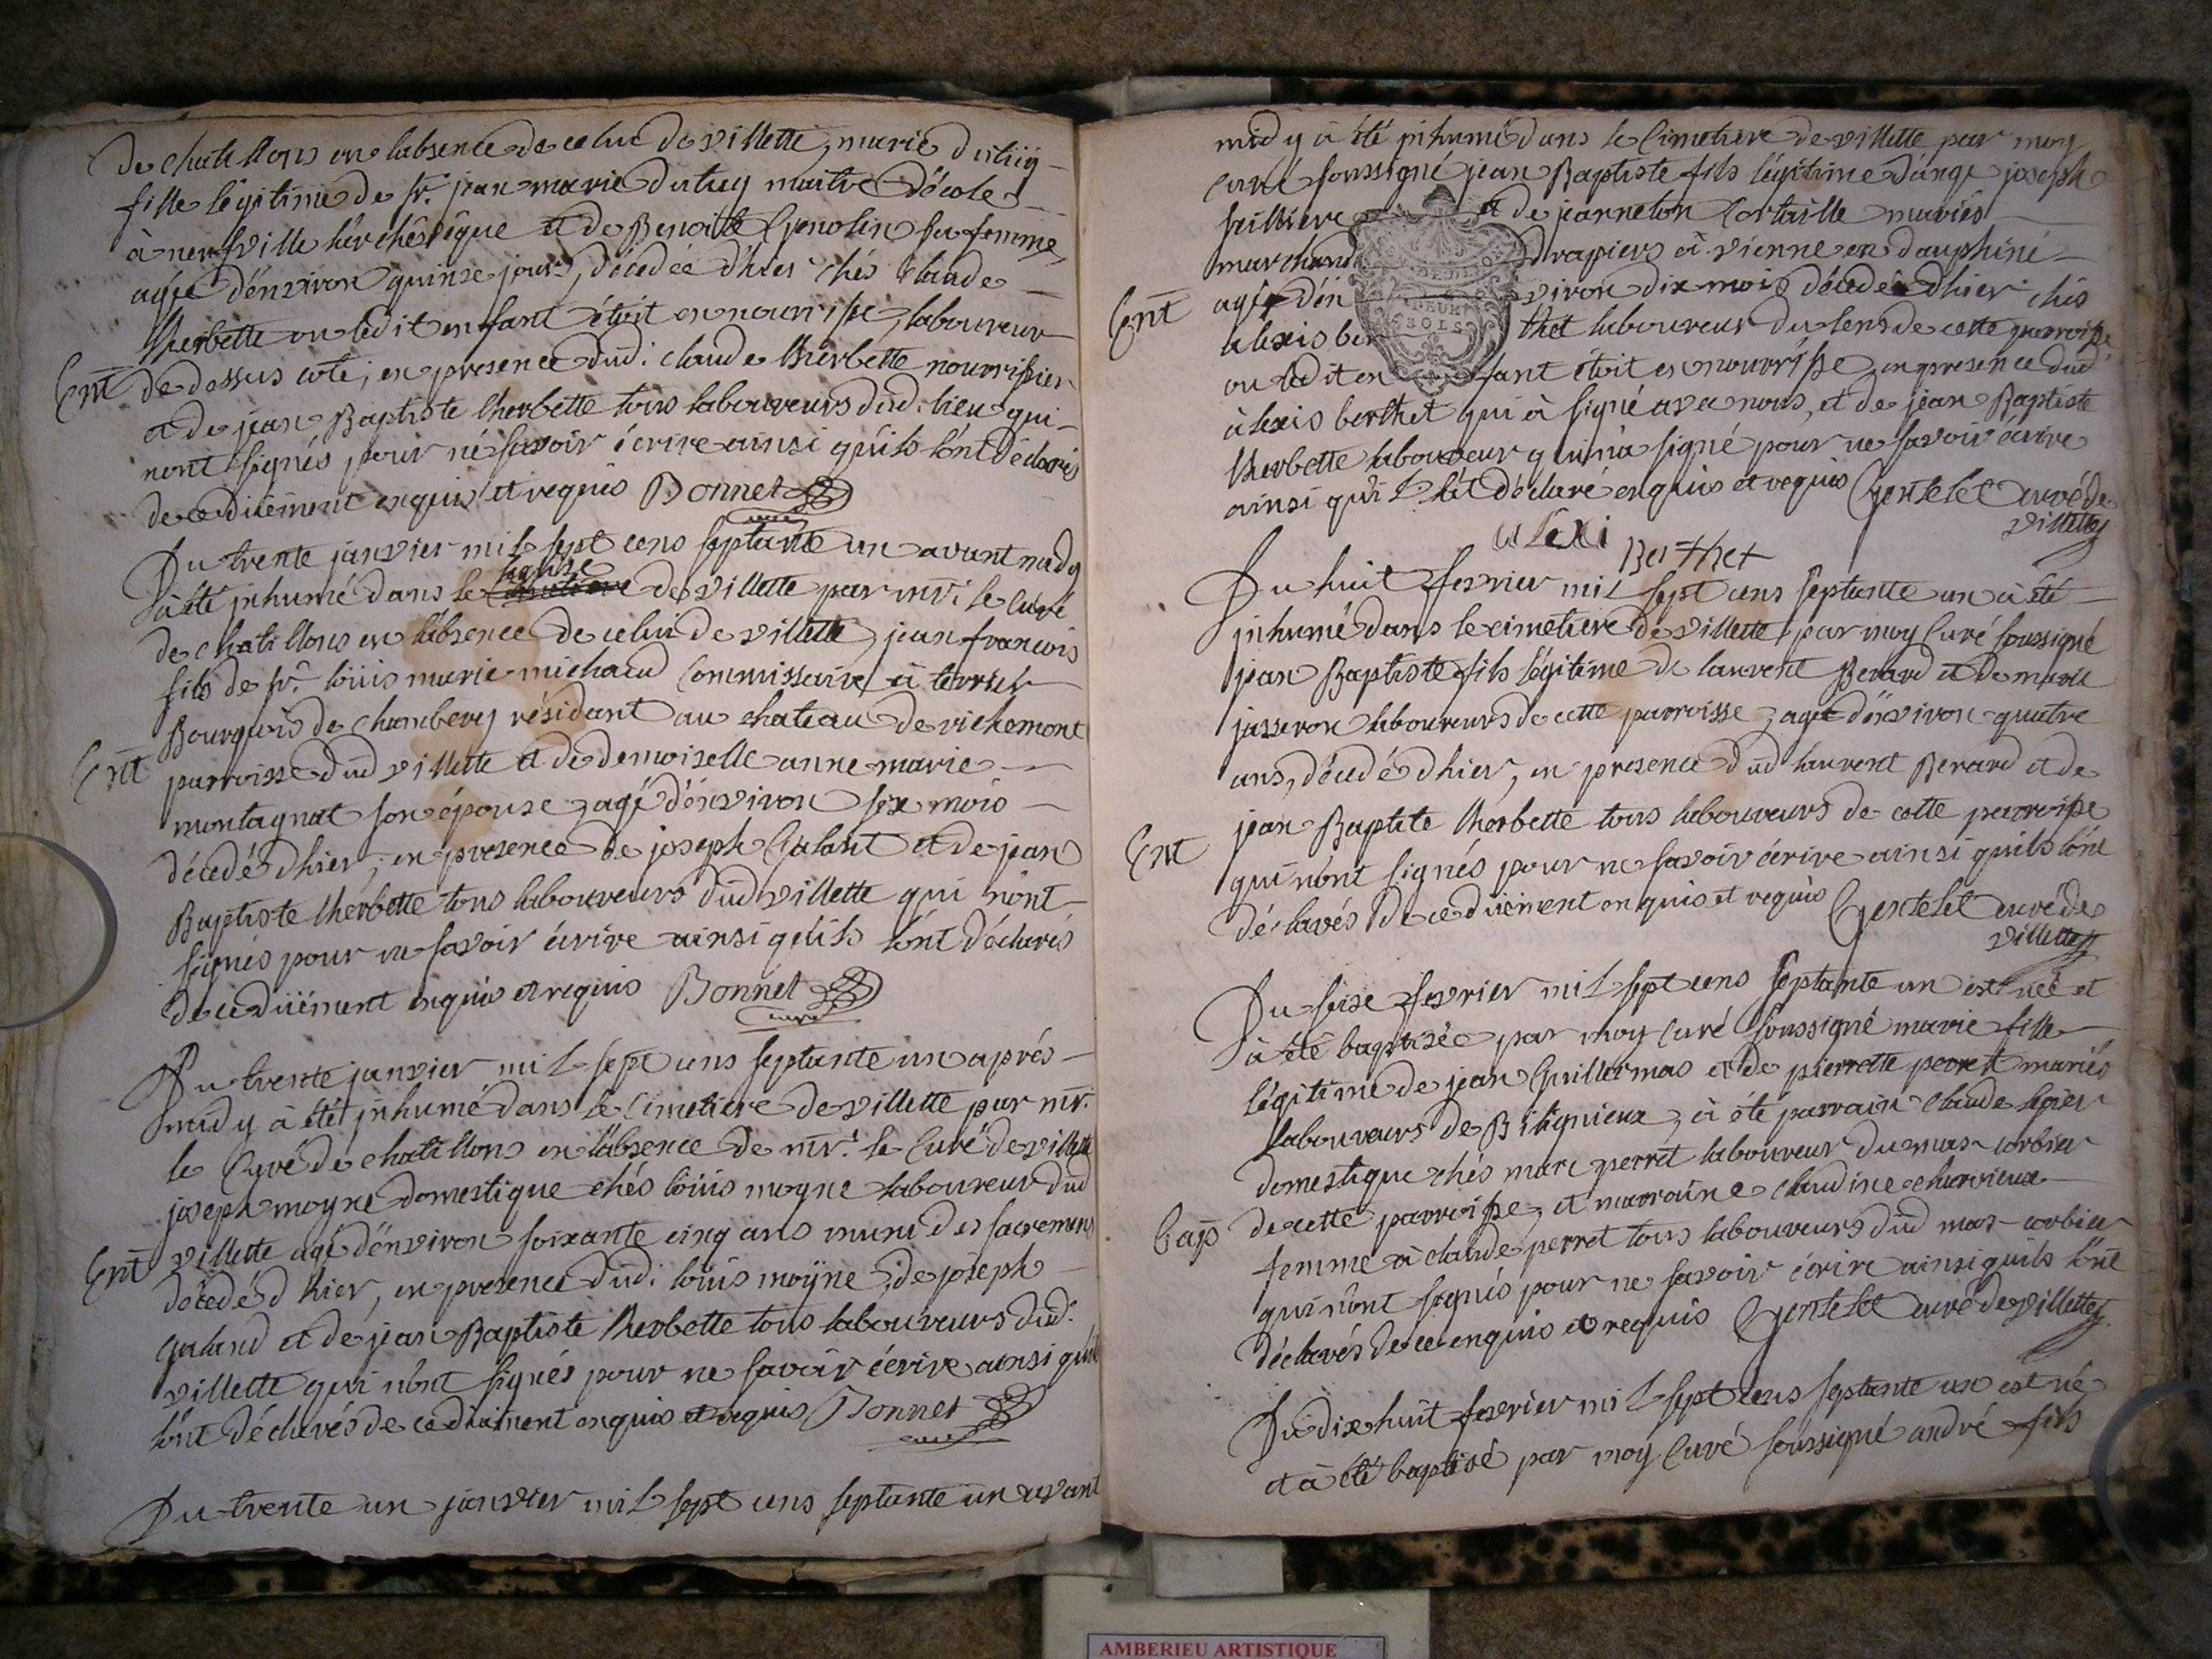 de chatillons en labsence de celui de villette, marie dutüy
fille légitime de Sr. jean marie dutuy maitre d'école
à neufville l'archêvêque et de Benoite Genolin sa femme,
agée d'environ quinse jours, décedée d'hier chés Claude
therbette ou ledit enfant étoit en nourrisse, laboureur
Ent de dessus coté, en presence dud: claude therbette nourrissier
et de jean Baptiste therbette tous laboureurs dud. lieu qui
nont signés pour né savoir écrire ainsi qu'ils lónt déclarés
de ce düement enquis et requis Bonnet
curé
Du trente janvier mil sept cens septante un avant midy
à été inhumé dans le cimetiere léglise de villette par mr: le Curé
de chatillons en l'absence de celui de villette, jean francois
fils de Sr. loüis marie michaud Commissaire à terrier
Bourgeois de chambery résidant au chateau de richemont
Ent parroisse dud villette et de demoiselle anne marie
montagnat son épouse, agé d'environ six mois
décedé d'hier, en presence de joseph Galant et de jean
Baptiste therbette tous laboureurs dud villette qui nónt
signés pour ne savoir écrire ainsi qu'ils lónt déclarés
de ce düement enquis et requis Bonnet
curé
Du trente janvier mil sept cens septante un aprés
midy à été inhumé dans le Cimetiere de villette par mr.
le Curé de chatillons en l'absence de mr. le Curé de villette
joseph moyne domestique chés loüis moyne laboureur dud
Ent villette agé d'environ soixante cinq ans muni des sacremens
décedé d'hier, en presence dud: loüis moyne, de joseph
galand et de jean Baptiste therbette tous laboureurs dud.
villette qui nónt signés pour ne savoir écrire ainsi quils
lónt déclarés de ce düement enquis et requis Bonnet
curé
Du trente un janvier mil sept cens septante un avant
midy à été inhumé dans le Cimetiere de villette par moy
Curé soussigné jean Baptiste fils légitime d'ange joseph
et de jeanneton Cortaille mariés
marchand drapiers à vienne en dauphiné
Ent agé d'environ dix mois décedé d'hier chés
alexis berthet laboureur du sens de cette parroisse
ou ledit enfant étoit en nourrisse, en presence dud
DEUX
SOLS
àlexis berthet qui à signé avec nous, et de jean Baptiste
therbette laboureur qui nà signé pour ne savoir écrire
ainsi qu'il l'at déclaré enquis et requis Gentelet curé de
villette
alexi Berthet
Du huit fevrier mil sept cens septante un à été
inhumé dans le cimetiere de villette par moy Curé soussigné
jean Baptiste fils légitime de laurent Berard et de marie
jasseron laboureurs de cette parroisse, agé d'environ quatre
ans, décedé d'hier, en presence dud laurent Berard et de
Ent jean Baptite therbette tous laboureurs de cette parroisse
qui nónt signés pour ne savoir écrire ainsi quils lónt
déclarés de ce düement enquis et requis Gentelet curé de
villette
Du seise fevrier mil sept cens septante un est née et
à été baptisée par moy Curé soussigné marie fille
légitime de jean Guillermas et de pierrette perret mariés
laboureurs de Bilignieux, à été parrain Claude
domestique chés marc perret laboureur du mas corbier
bap de cette parroisse, et marraine claudine charvieux
femme à claude perret tous laboureurs dud mas corbier
qui nónt signés pour ne savoir écrire ainsi quils lónt
déclarés de ce enquis et requis Gentelet curé de villette
Du dix huit fevrier mil sept cens septante un est né
et à été baptisé par moy Curé soussigné andré fils
AMBERIEU ARTISTIQUE